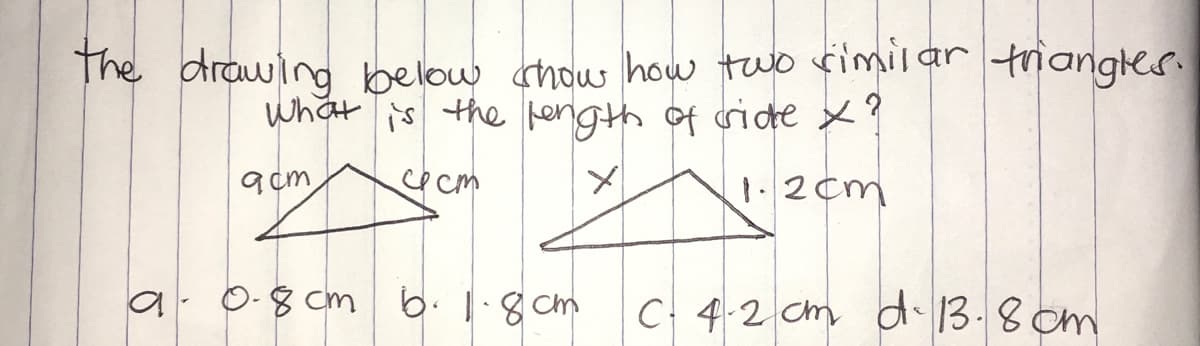 the drawing below show how two similar triangles.
What is the length of side x?
9cm 6cm x 1.2cm
a. 0.8cm b. 1.8cm c. 4.2cm d. 13.8cm